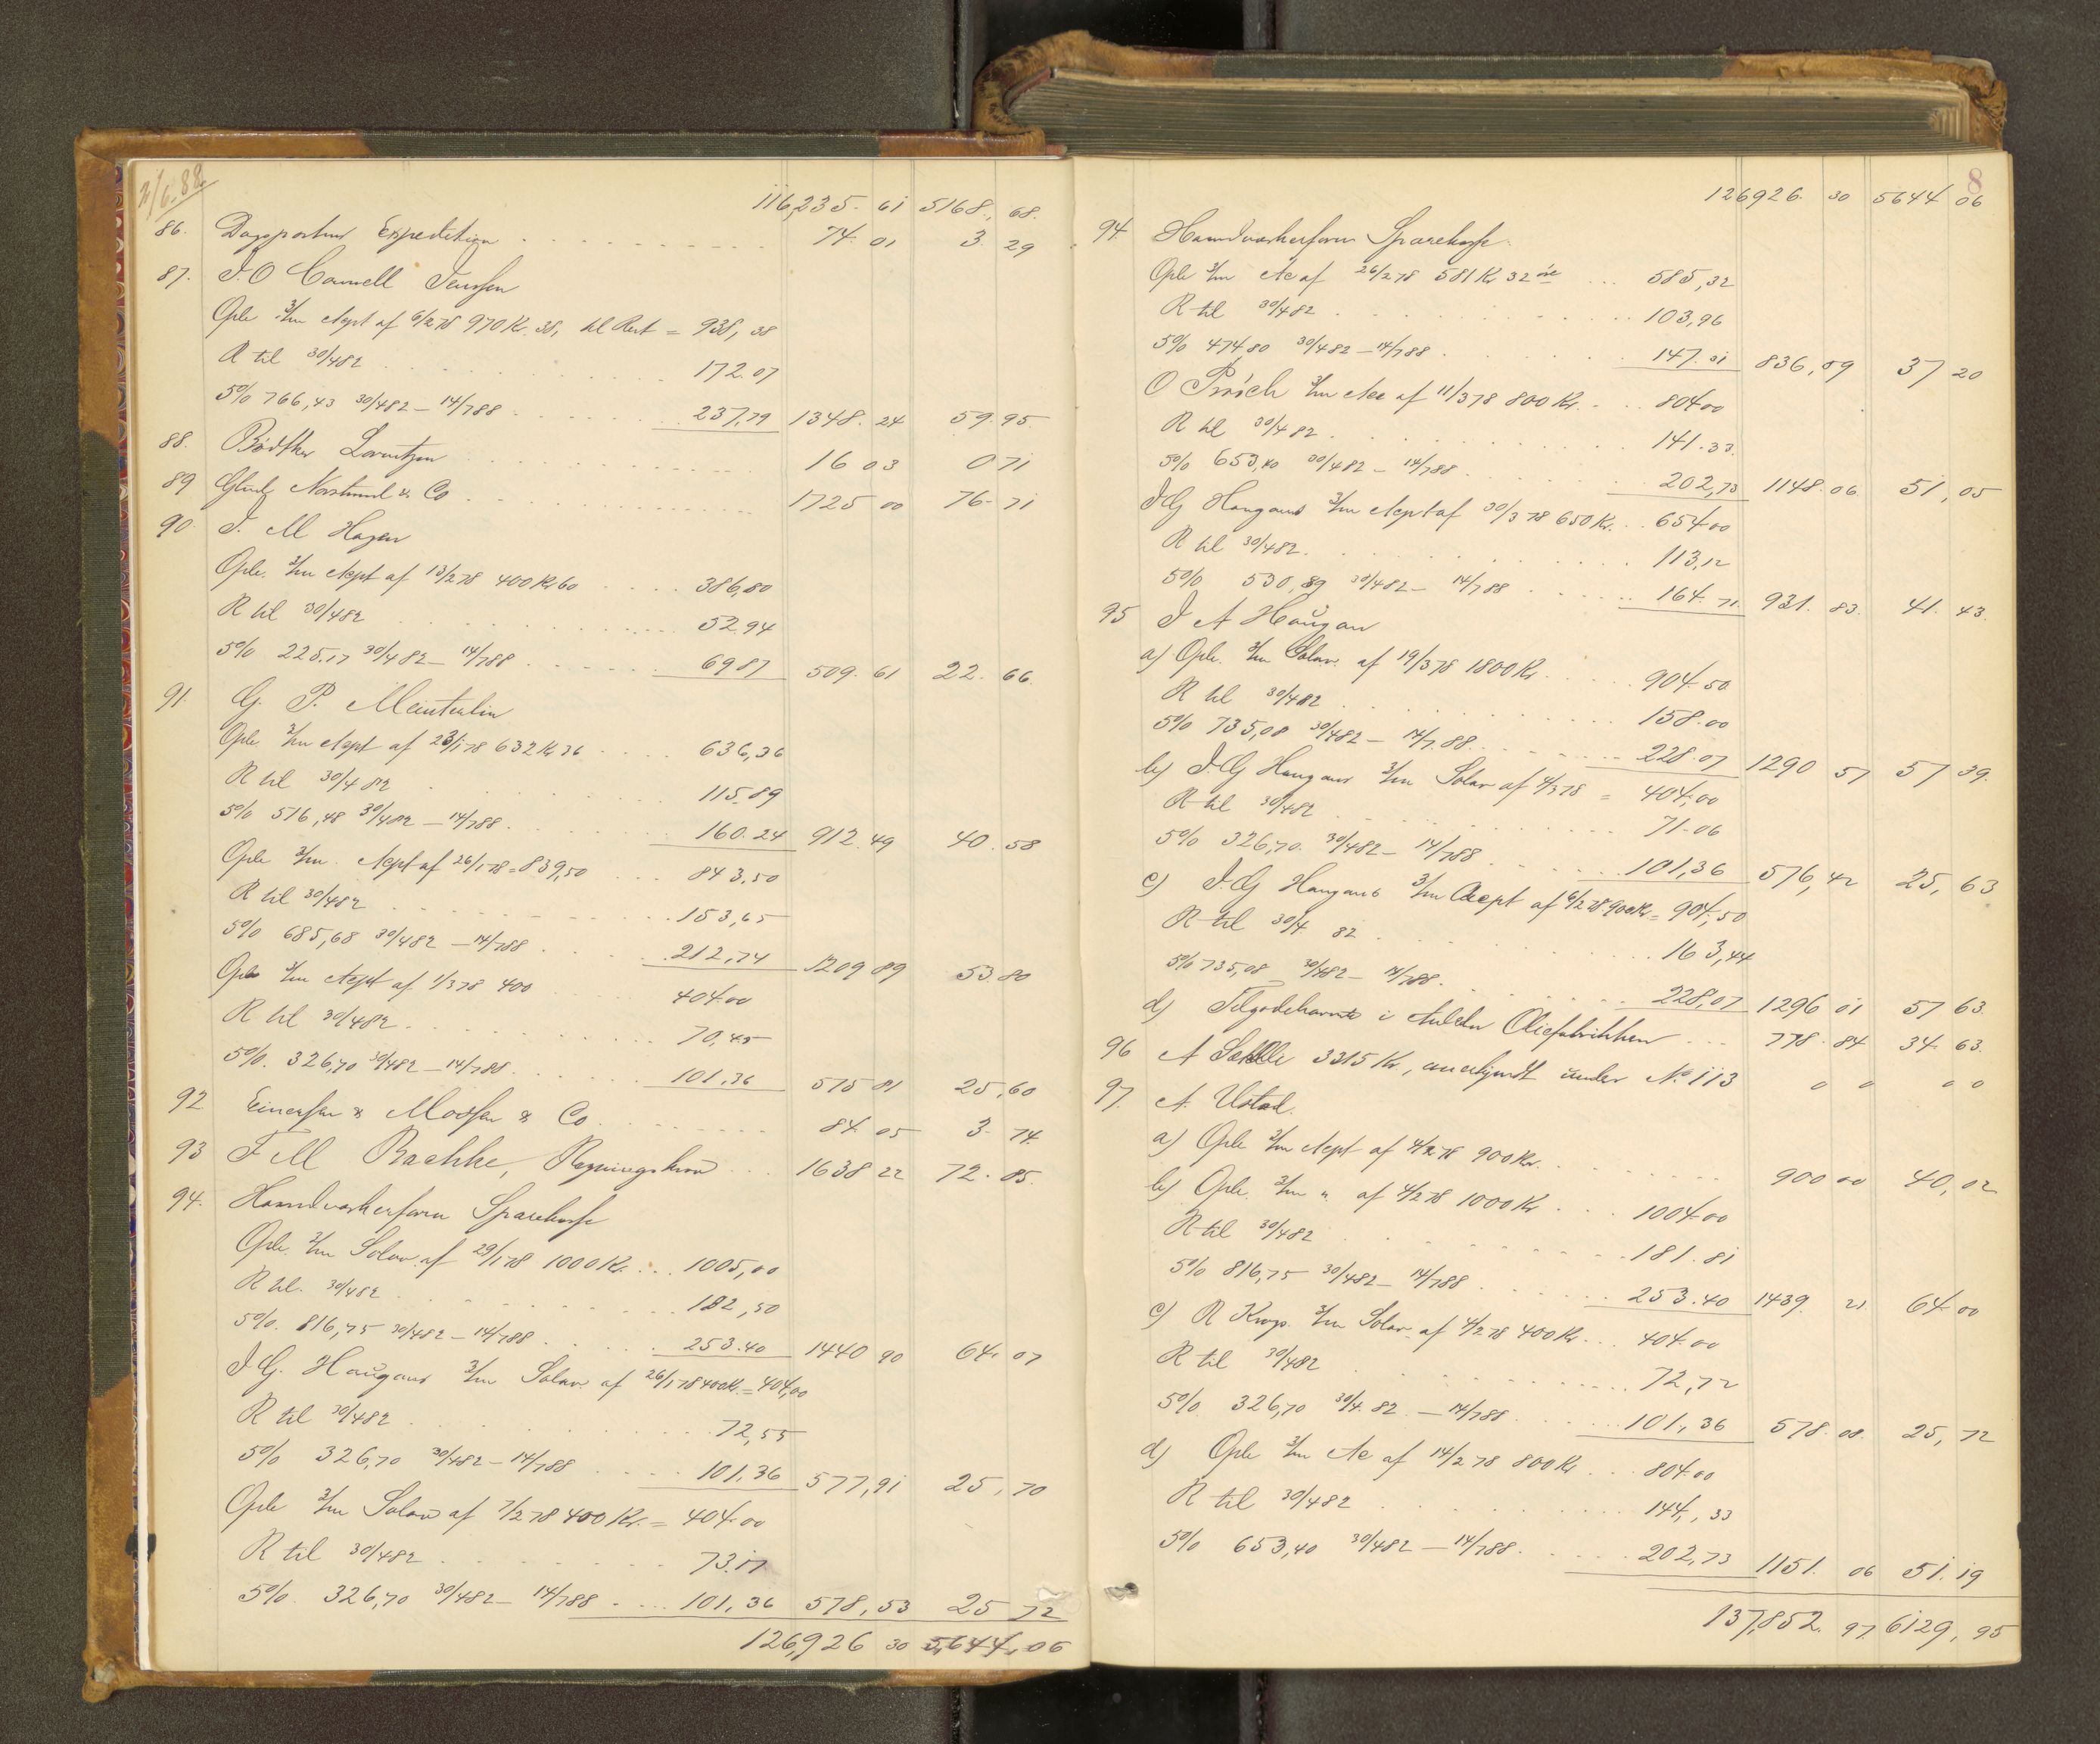 2/6.88.
116,235. 61 5168., 68.
86. Dagsposten Expedition 74. 01 3. 29
87. J. O Cornell Jenssen
Opli 3/m Acpt af 6/278 970 Kr. 38, til Rest = 938, 38
R til 30/482 172.07
5% 766,43 30/482 – 14/788 237,79 1348. 24 59. 95.
88. Bødtker Lorentzen 16 03 0 71
89 Nordlund & Co 1725 00 76. 71
90. J. M Hagen
Opli. 3/m Acpt af 13/278 400 Kr 60 386,80
R til 30/482 52.94
5% 225.17 30/482 – 14/788 69 87 509. 61 22. 66.
91. G. P.
Opli. 3/m Acpt af 23/178 632 Kr 36 636,36
R til 30/482 115.89
5% 516,48 30/482 – 14/788. 160.24 912. 49 40. 58
Opli 3/m. Acpt af 26/178 = 839,50 843,50
R til 30/482 153,65
5% 685,68 30/482 – 14/788 212,74 1209 89 53. 80
Opli 3/m Acpt af 1/378 400 404.00
R til 30/482. 70,45
5%. 326,70 30/482 – 14/788. 101,36 575 81 25, 60
92 Einersen & Co 84. 05 3. 74.
93 F M Bachke, Regningskrav 1638 22 72. 85.
94. Haandværkerforn Sparekasse
Opli. 3/m Solav. af 29/178 1000 Kr. 1005,00
R til. 30/482 182,50
5%. 816,75 30/482 – 14/788. 253.40 1440 90 64. 07
J G. Haugans 3/m Solav. af 26/178 400 Kr. = 404,00
R til 30/482 72,55
5% 326,70 30/482 – 14/788 101,36 577,91 25, 70
Opli 3/m Solav af 7/278 400 Kr. = 404.00
R til 30/482 73.17
5%. 326,70 30/482 – 14/788 101,36 578,53 25 72
126,926 30 5,644, 06
8
126926. 30 5644 06
94. Haandværkerforn Sparekasse.
Opli 3/m Ac af 26/278 581 Kr 32 øre 585,32
R til 30/482 103,96
5% 474 80 30/482 – 14/788. 147.01 836, 09 37 20
O Broch 3/m Acc af 11/378 800 Kr. 804 00
R til 30/482. 141.33.
5% 653,40 30/482 – 14/788. 202,73 1148. 06 51, 05
J G Haugans 3/m Acpt af 30/378 650 Kr. 654 00
R til 30/482. 113,12
5% 530,89 30/482 – 14/788 164. 71. 931. 83. 41. 43.
95 J A Haugan
a) Opli. 3/m Solav. af 19/378 1800 Kr. 904. 50.
R til 30/482 158.00
5% 735,08 30/482 – 14/7.88. 228.07 1290 57 57 39.
b) J. G Haugans 3/m Solav af 4/378 = 404,00
R til 30/482 71.06
5% 326,70. 30/482 – 14/788 101,36 576, 42 25, 63
c) J. G Haugans 3/m Accpt af 6/278 900 Kr = 904,50
R til 30/4 82 163,44
5% 735,08 30/482 – 14/788. 228,07 1296 01 57 63.
d) Tilgodehavende i Oliefabrikken 778. 84 34. 63.
96 A Sæhlle 3315 Kr, anerkjendt under No 113 0 0 0 0
97. A. Ustad.
a) Opli 3/m Acpt af 4/278 900 Kr. 900 00 40, 02
b) Opli. 3/m " af 4/278 1000 Kr 1004.00
R til 30/482 181.81
5% 816,75 30/482 – 14/788 253.40 1439. 21 64 00
c) R Krogs. 3/m Solav. af 4/278 400 Kr. 404.00
R til 30/482 72,72
5% 326,70 30/4. 82. – 14/788 101,36 578. 08. 25, 72
d) Opli 3/m Ac af 14/278 800 Kr 804.00
R til 30/482 144,, 33
5% 653,40 30/482 – 14/788. 202,73 1151. 06 51. 19
137,852. 97. 6129, 95